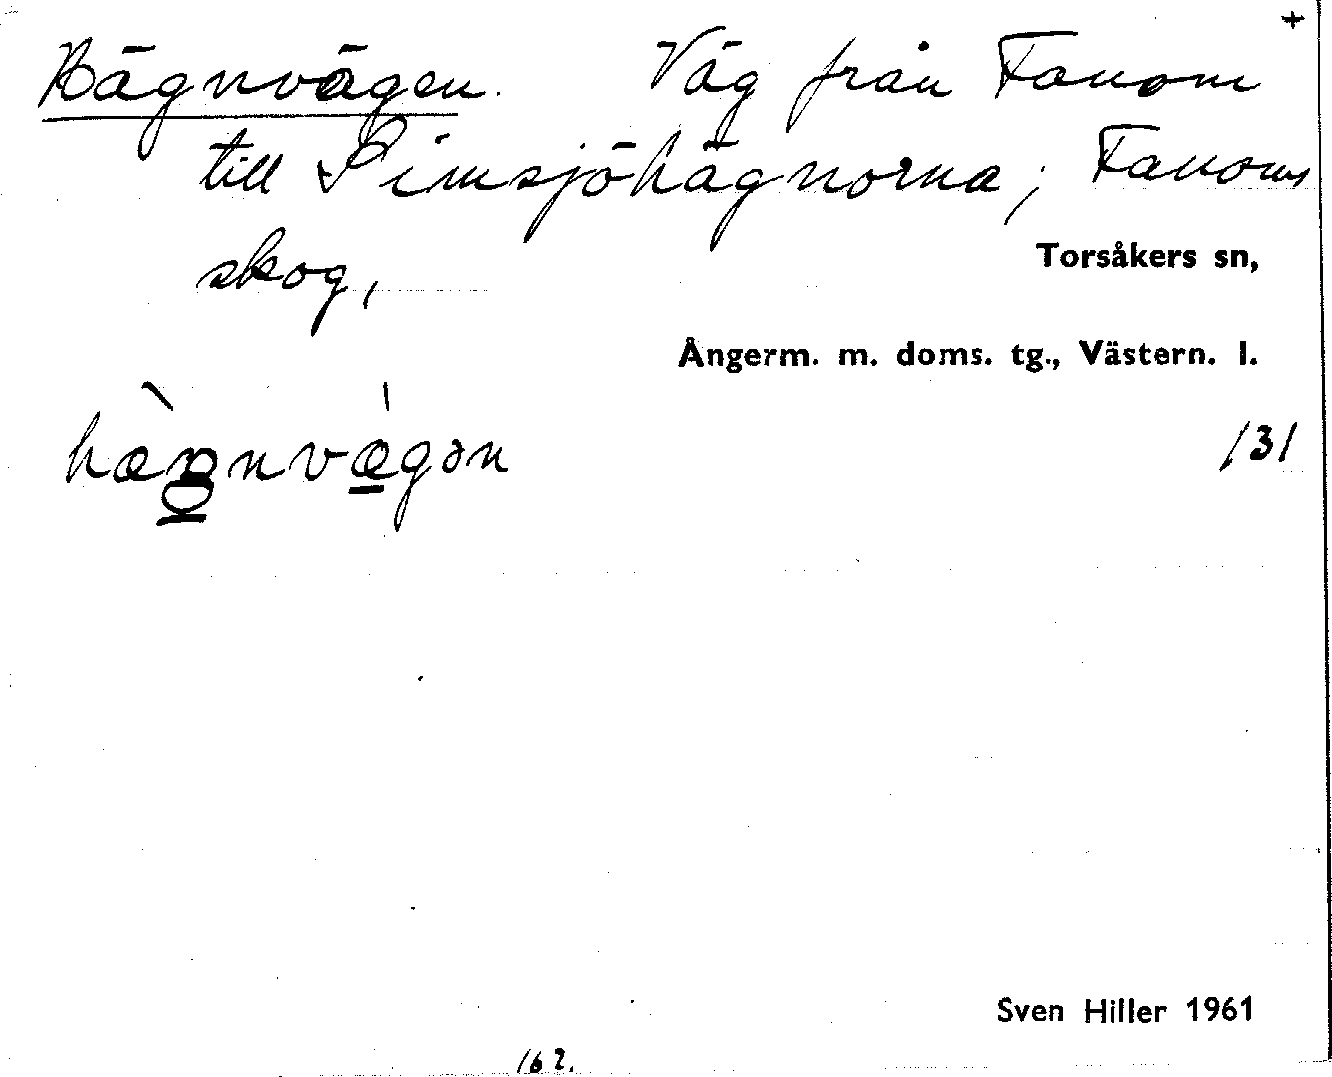 +
Hägnvägen. Väg från Fanom
till Simsjöhägnorna; Fanoms
skog,
Torsåkers sn,
Ångerm. m. doms. tg., Västern. l.
131
Sven Hiller 1961
162.